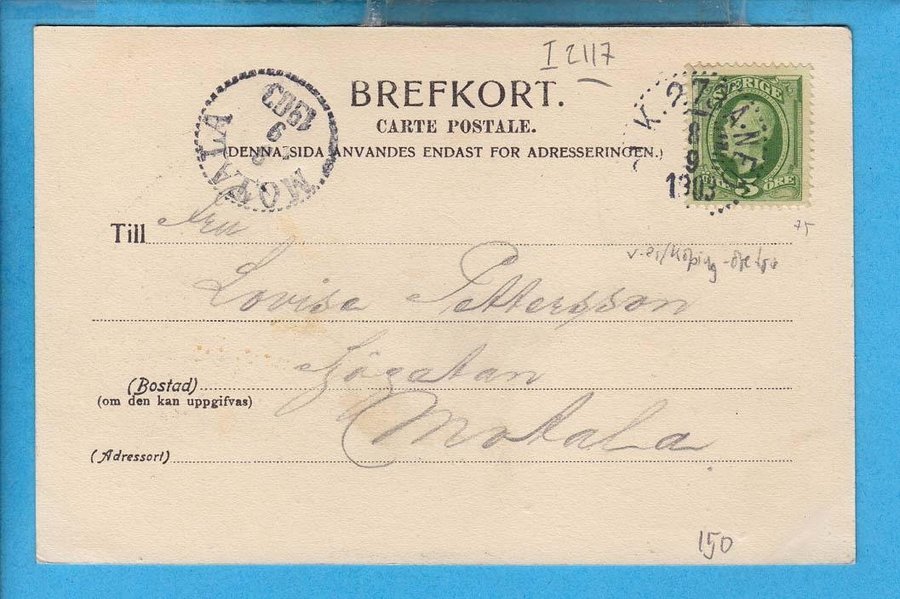 I 2117
BREFKORT.
CARTE POSTALE.
(DENNA SIDA ANVANDES ENDAST FOR ADRESSERINGEN.)
MOTALA
9
1903
SVERIGE
5 ÖRE
8
9
1903
75
Till Fru
Lovisa Pettersson
(Bostad)
(om den kan uppgifvas)
Sjögatan
(Adressort)
Motala
150